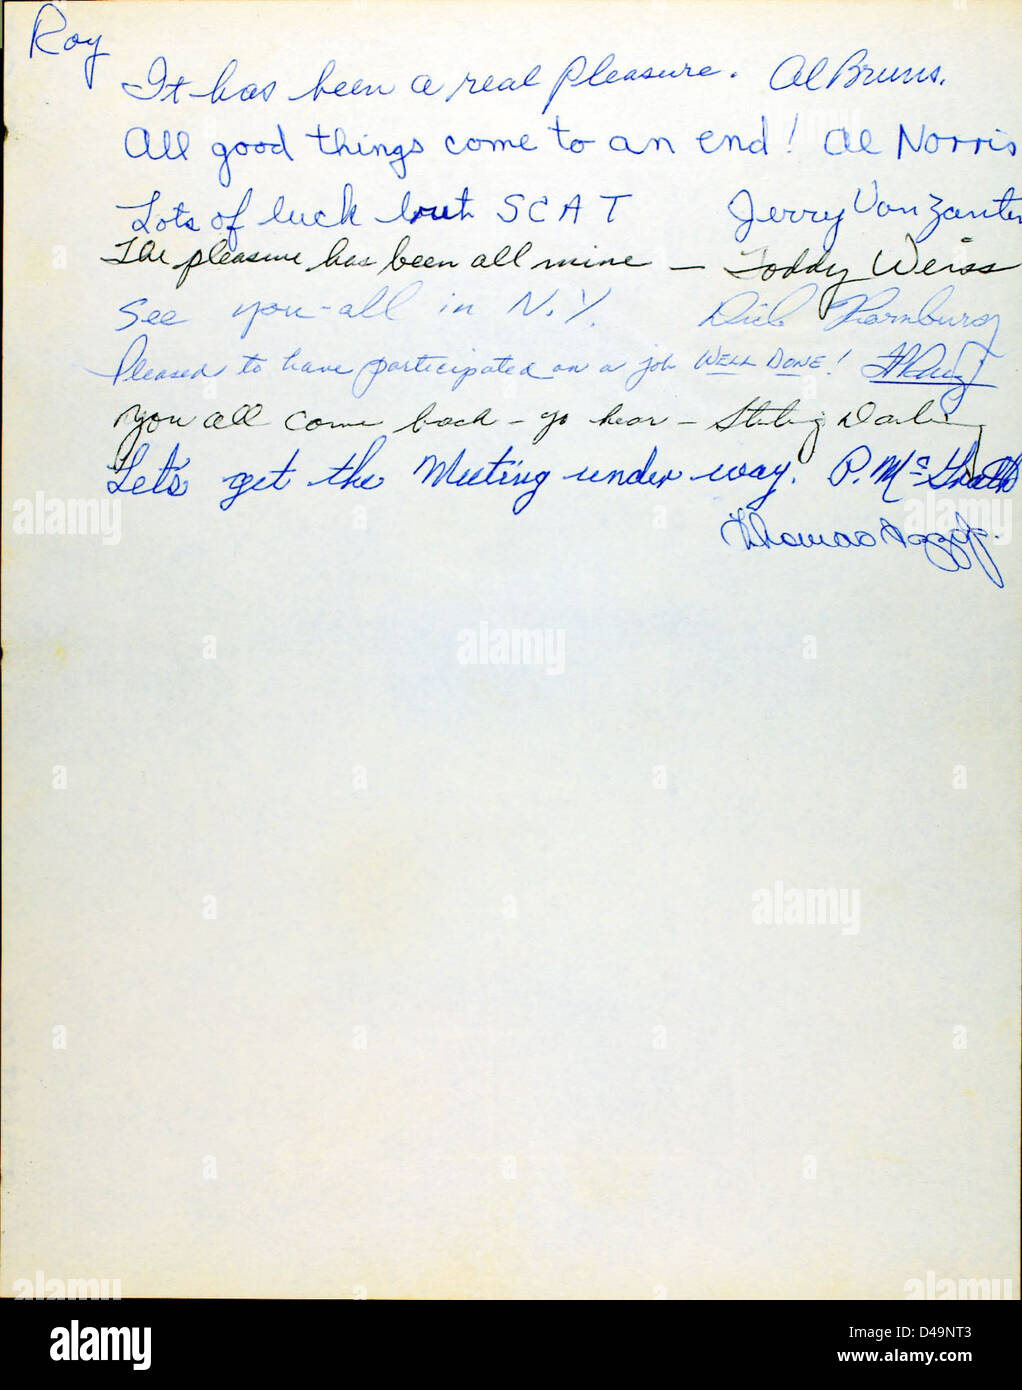 Roy
It has been a real pleasure. Al Bruns.
All good things come to an end! Al Norris
Lots of luck SCAT Jerry Van Zanten
The pleasure has been all mine — Toddy Weiss
See you-all in N.Y. Dick Thornburg
Pleased to have participated on a job WELL DONE!
You all come back - yo hear - Sterling Darling
Let's get the Meeting under way. P. McGrath
Thomas
alamy
alamy
Image ID: D49NT3
www.alamy.com